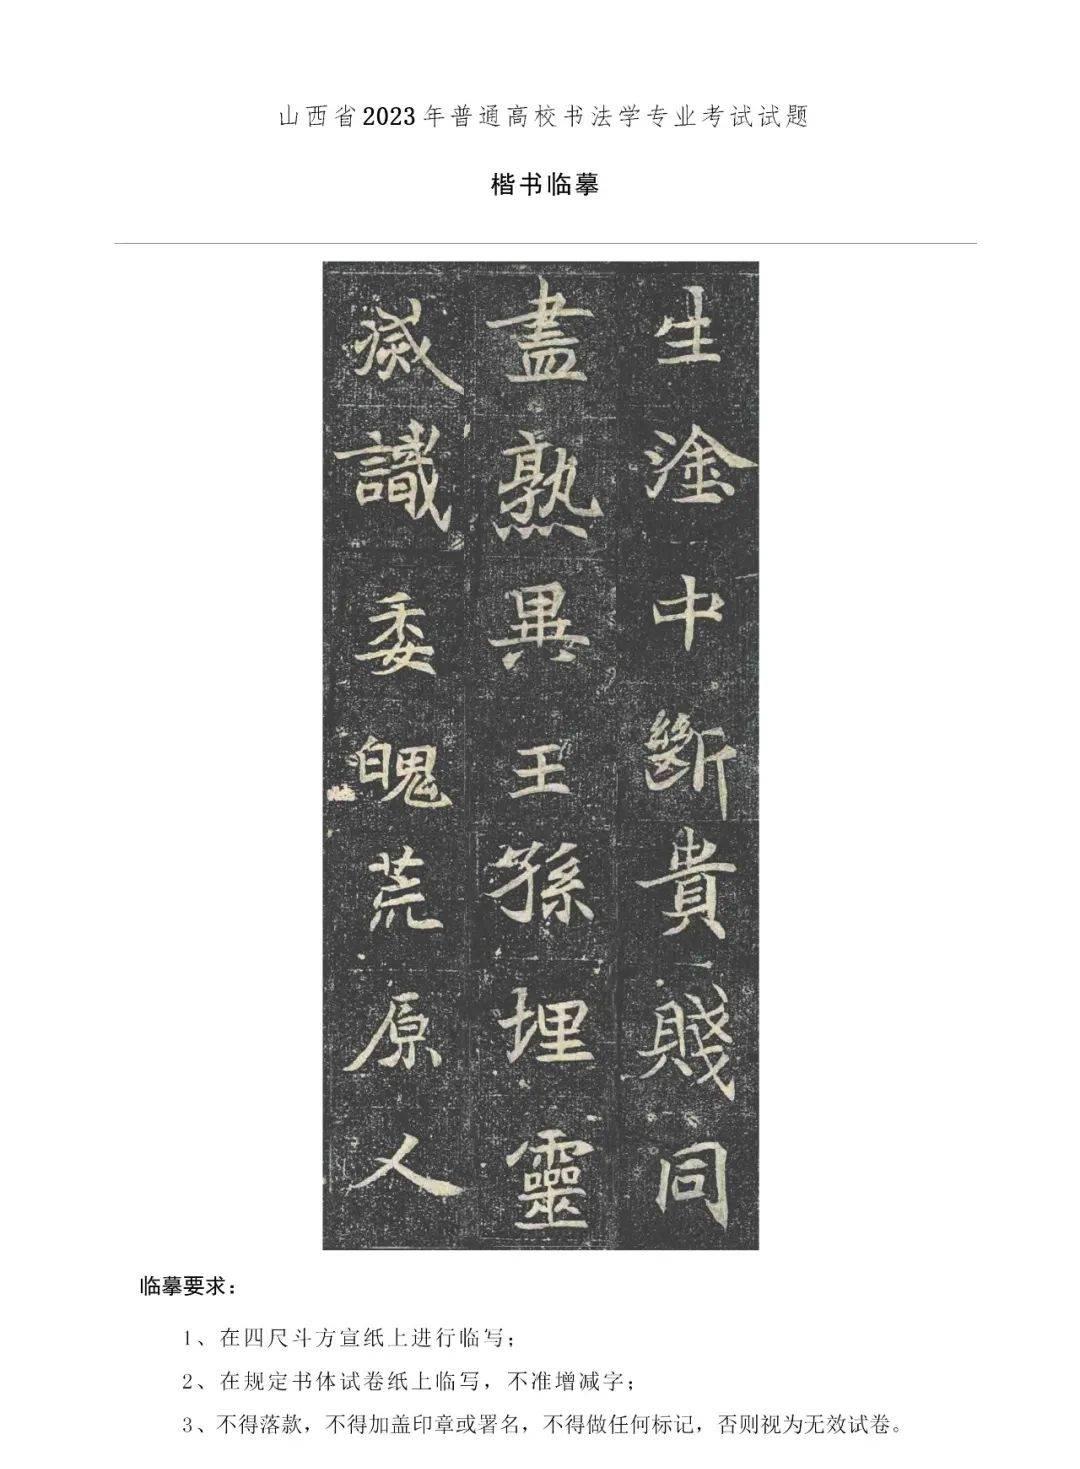 山西省2023年普通高校书法学专业考试试题
楷书临摹
生塗中斷貴賤同
盡熟異王孫埋靈
滅識委魄荒原人
临摹要求：
1、在四尺斗方宣纸上进行临写；
2、在规定书体试卷纸上临写，不准增减字；
3、不得落款，不得加盖印章或署名，不得做任何标记，否则视为无效试卷。